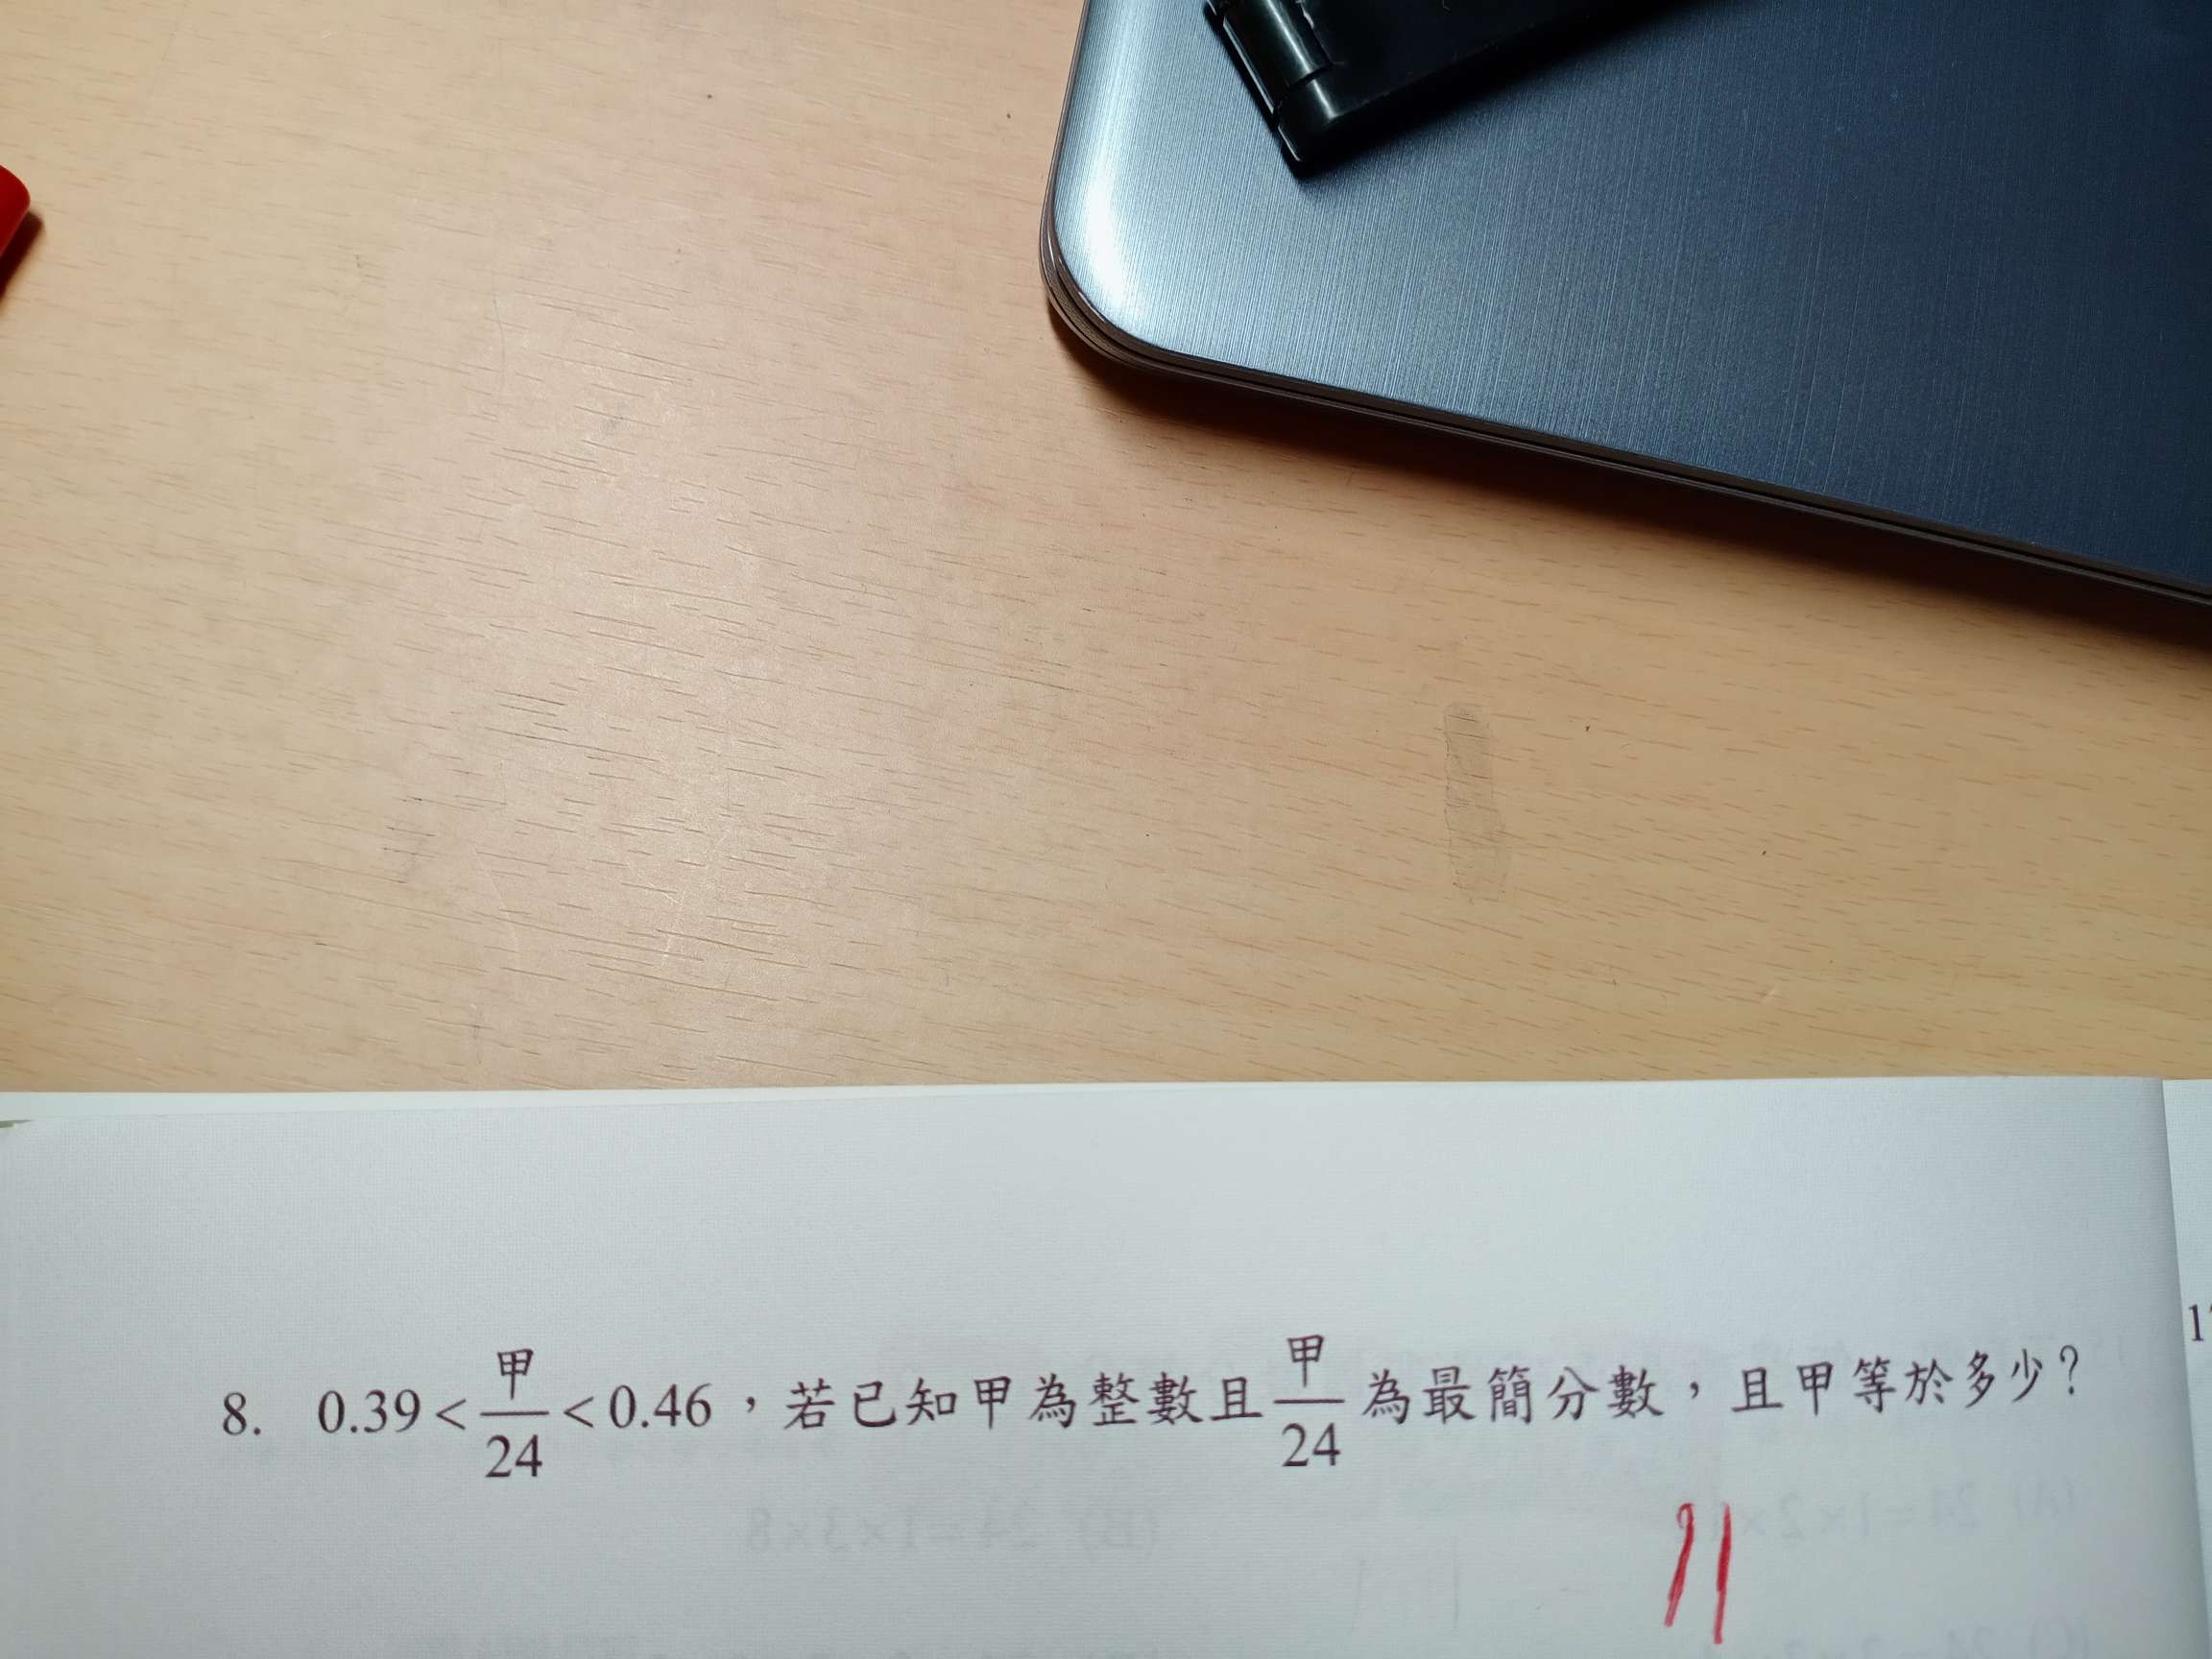 8. 0.39 < 甲/24 < 0.46，若已知甲為整數且 甲/24 為最簡分數，且甲等於多少？
11